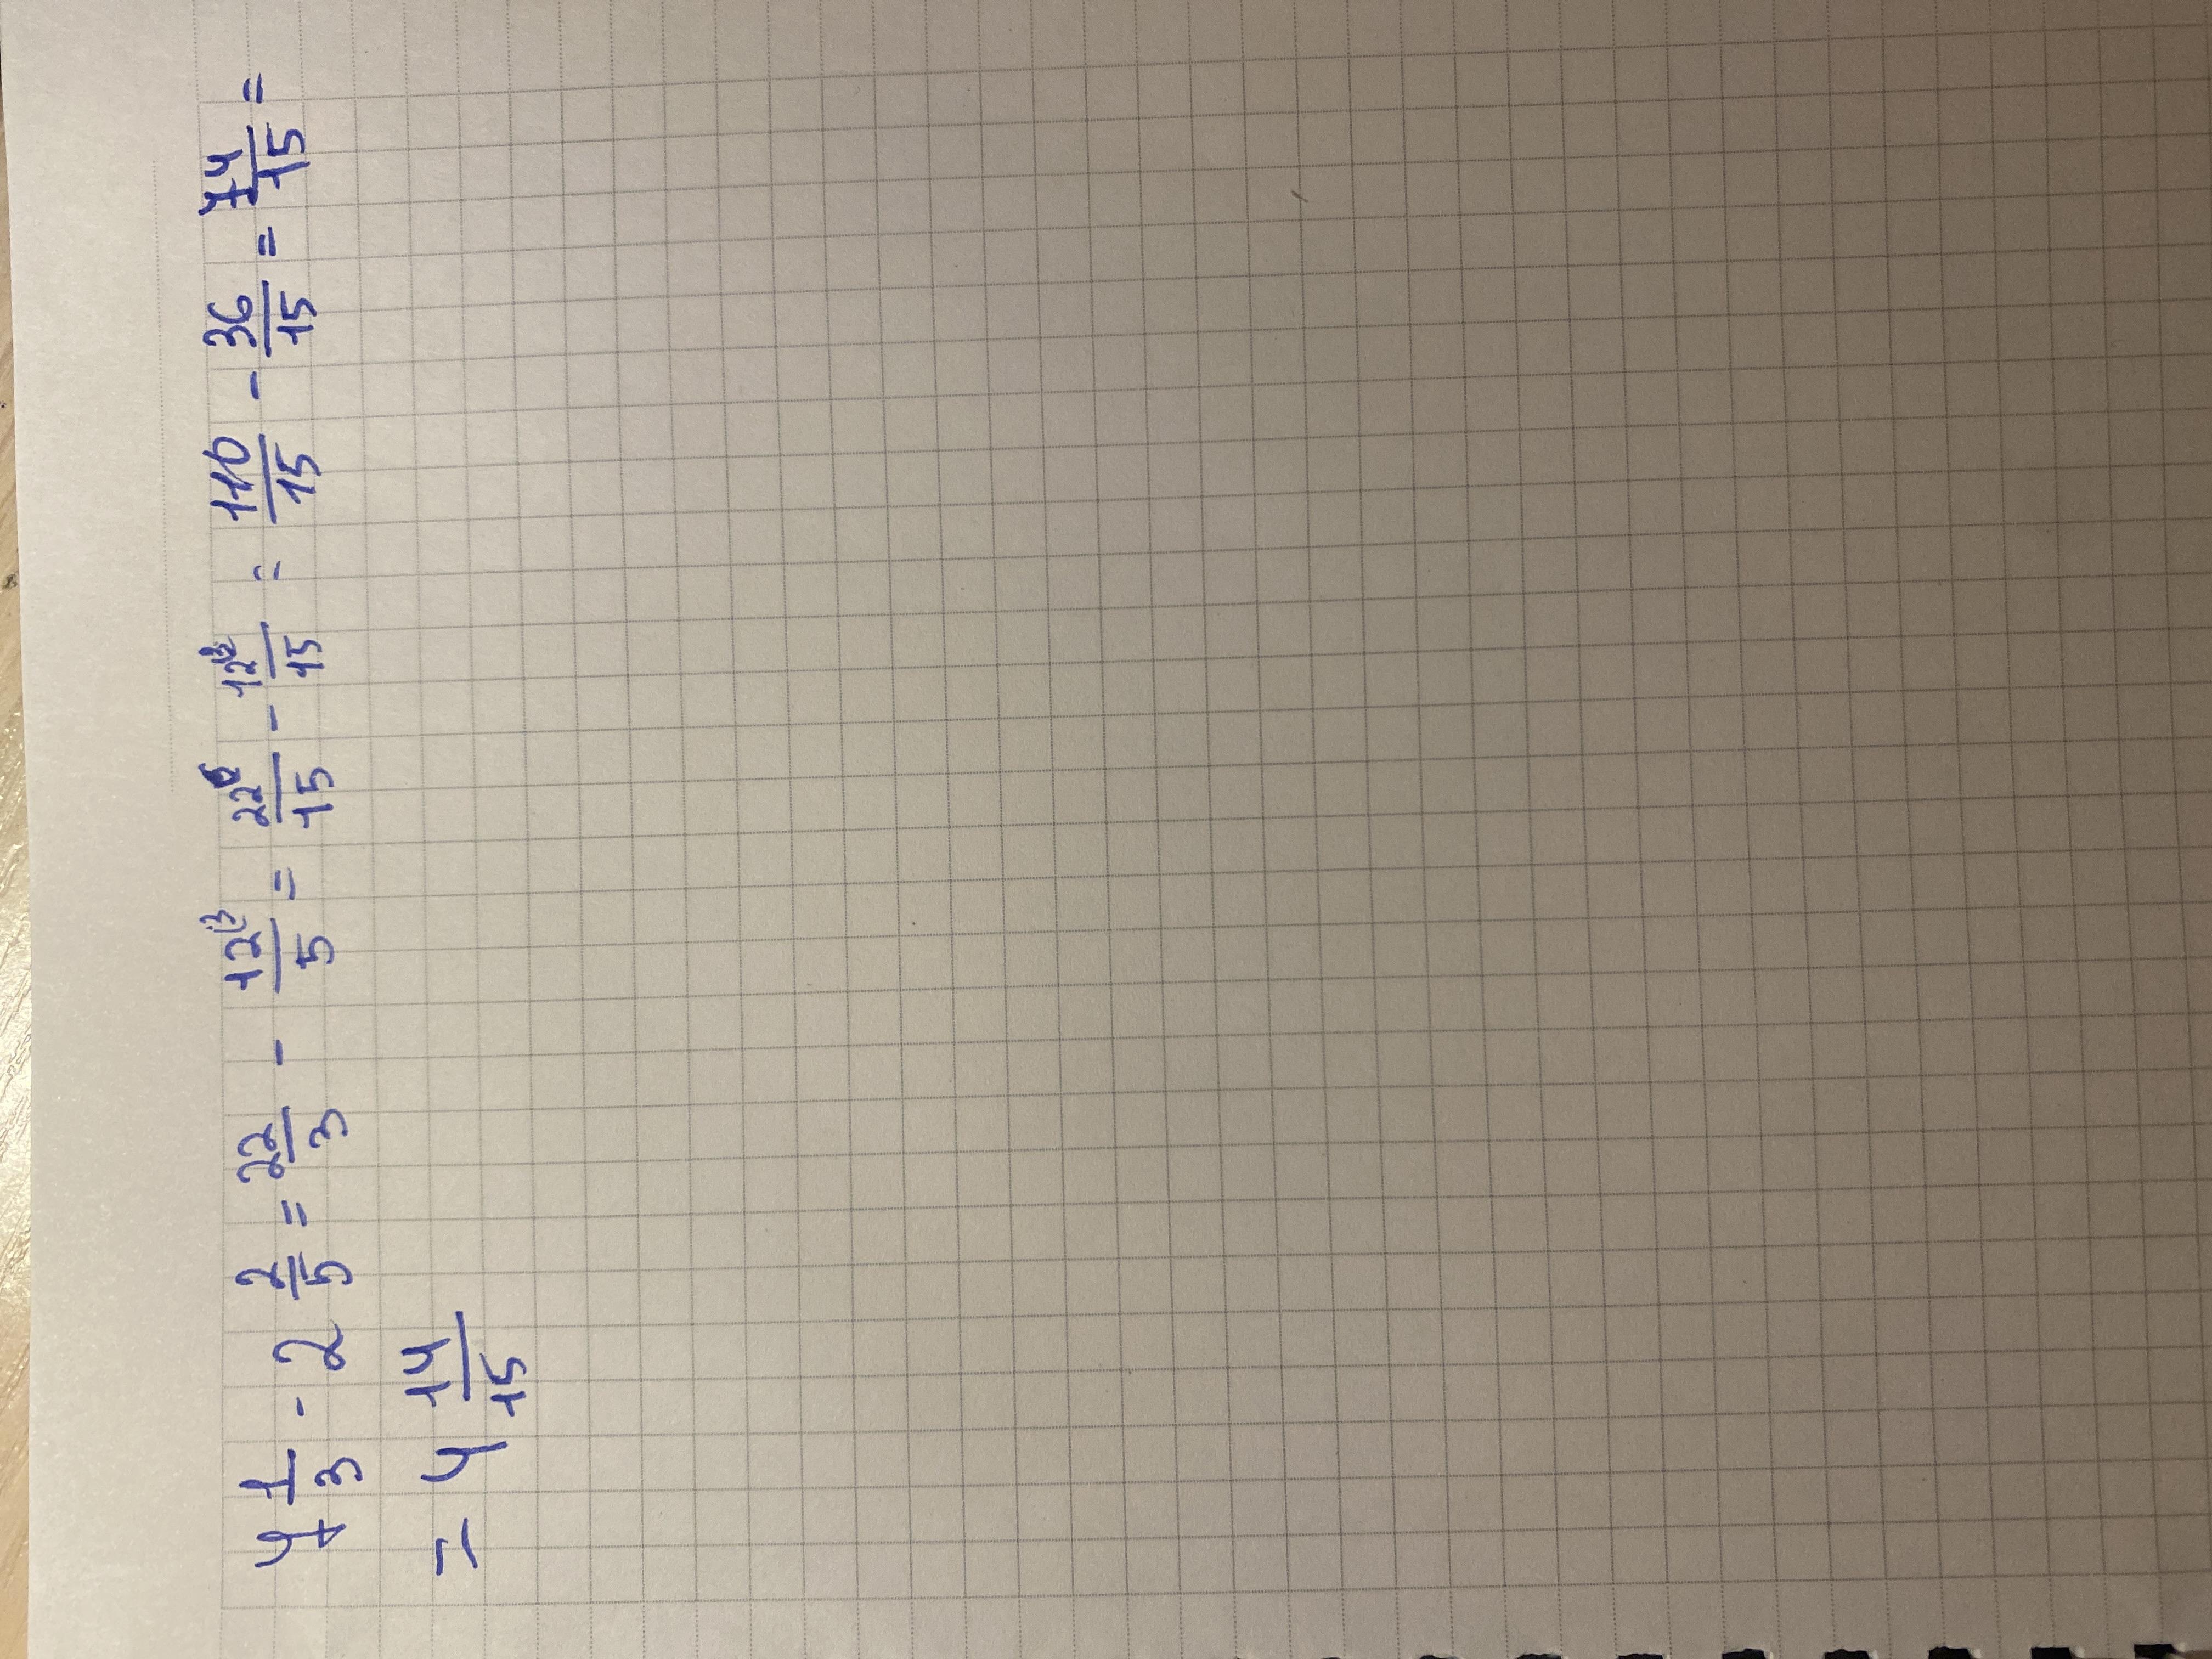 7 1/3 - 2 2/5 = 22/3 - 12^(3/5 = 22^5/15 - 12^3/15 = 110/15 - 36/15 = 74/15 =
= 4 14/15